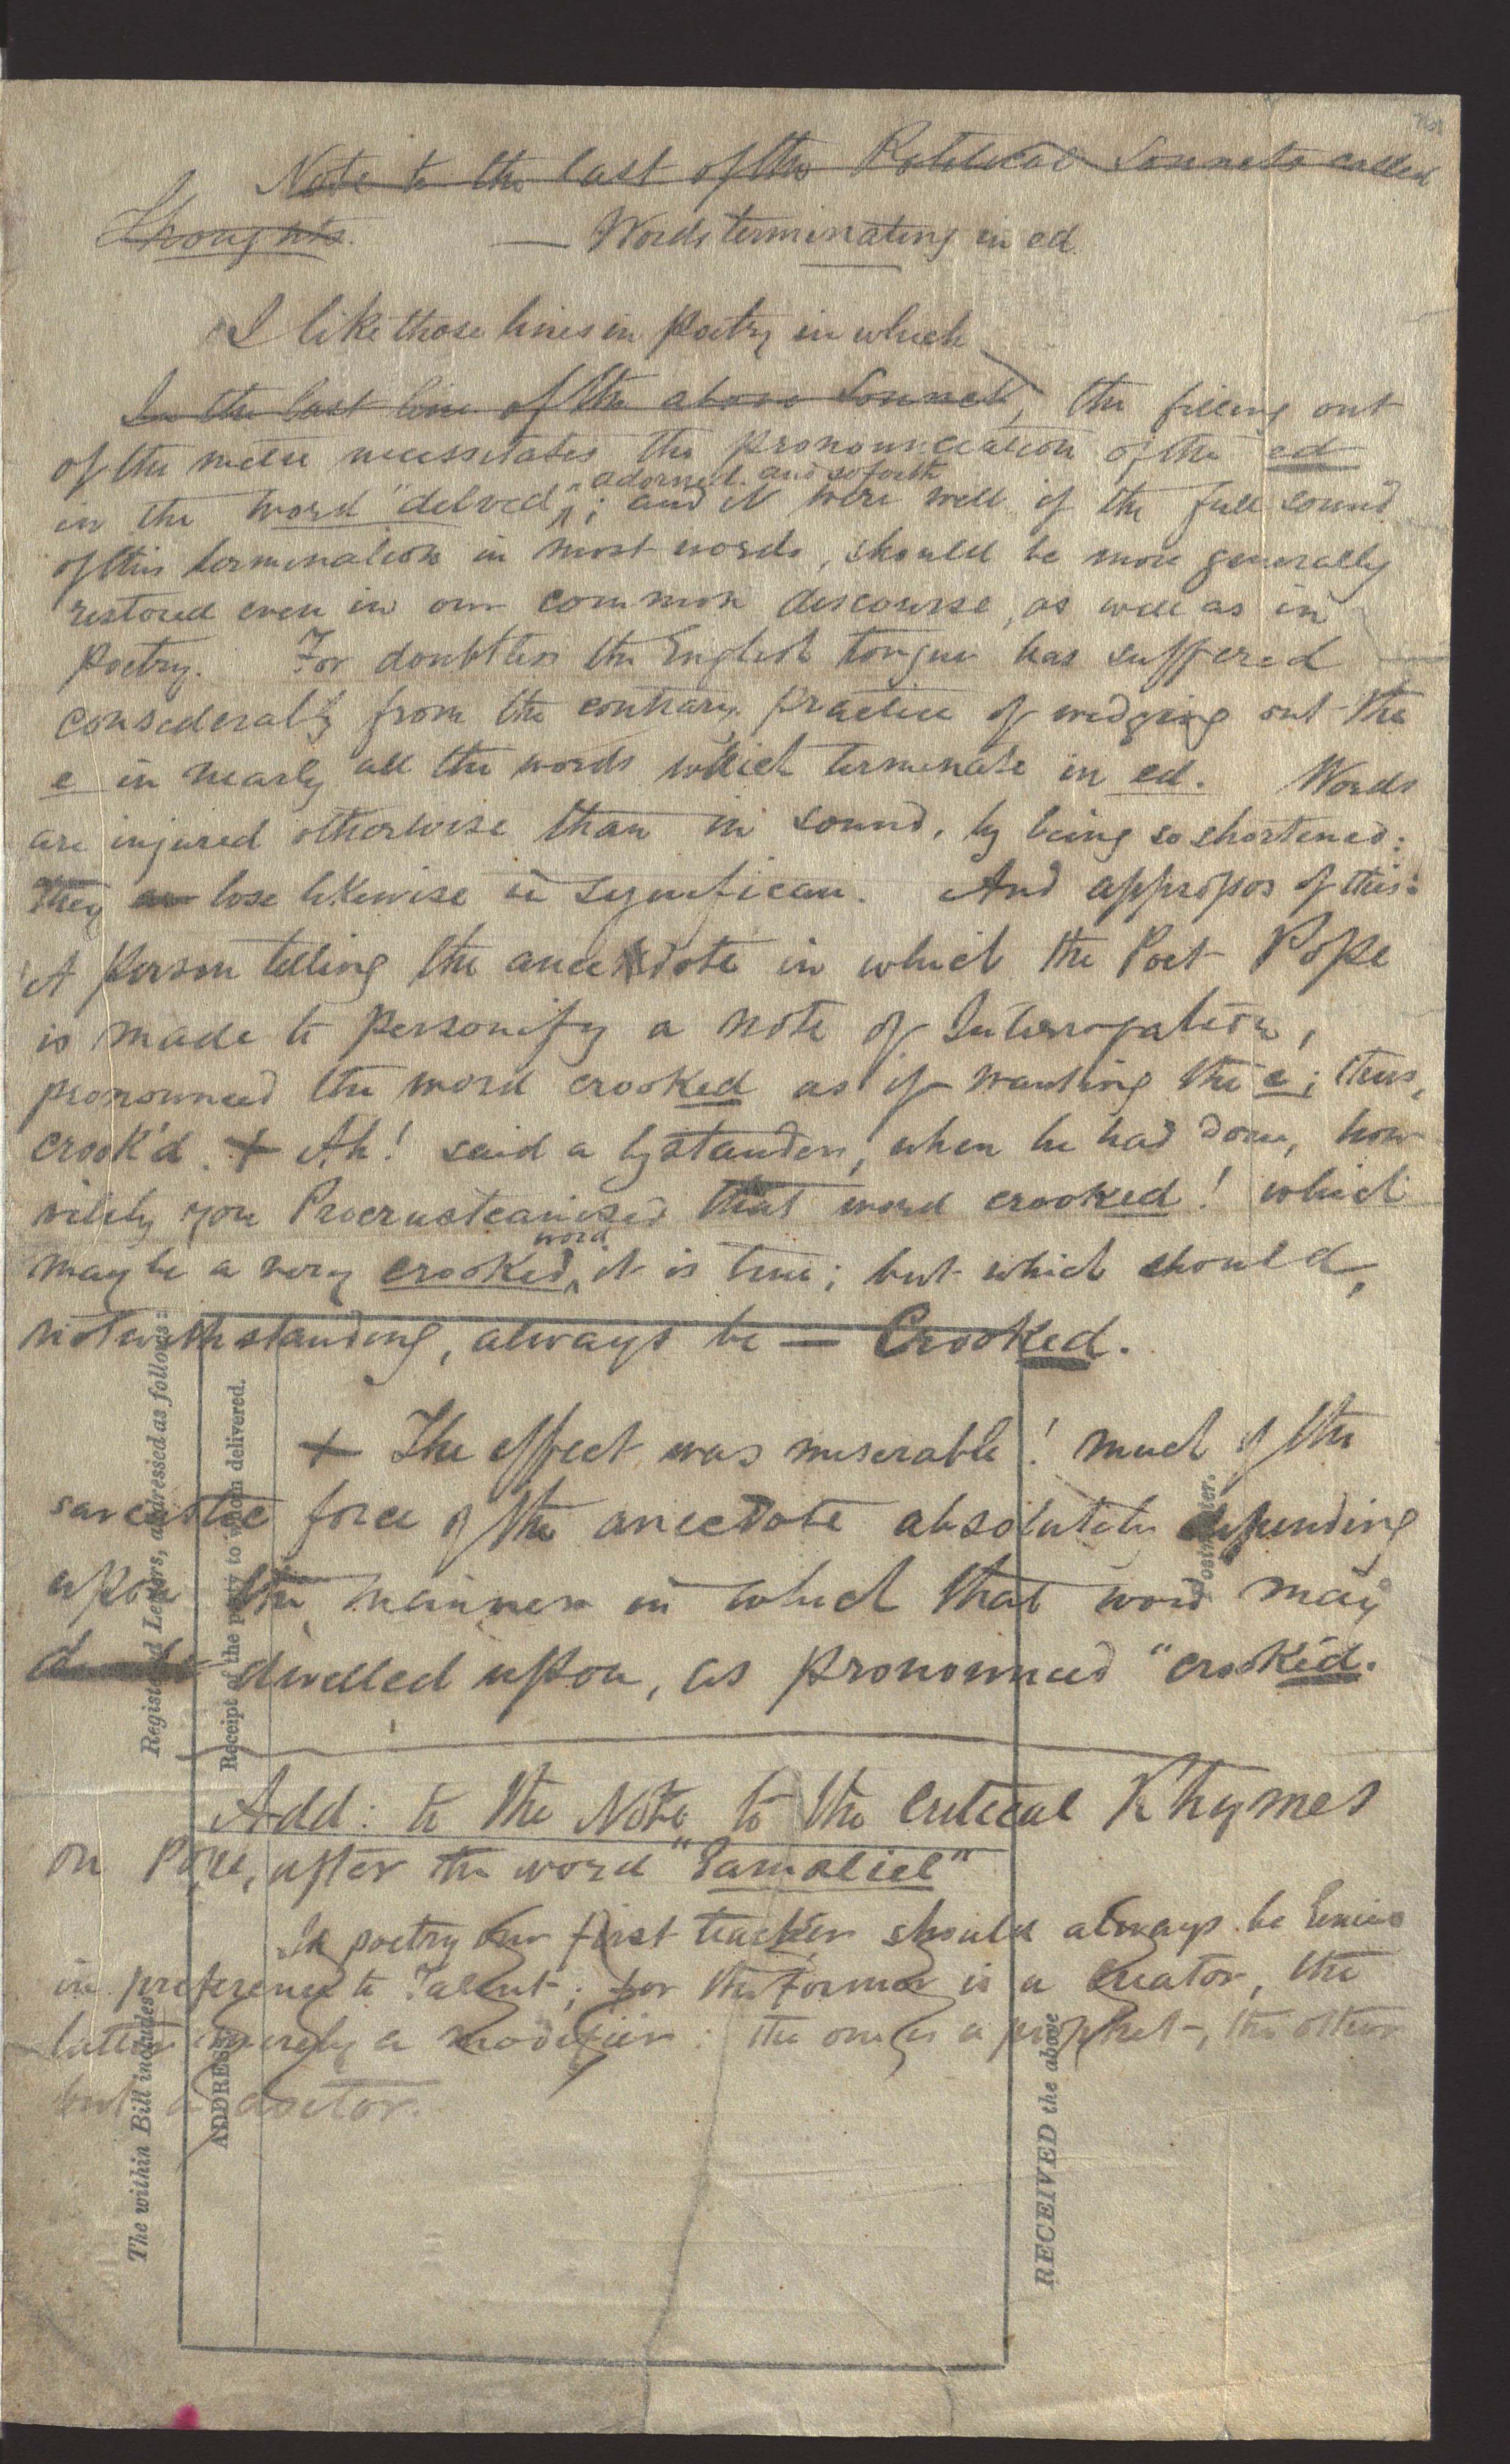 Note to the last of the Political Sonnets called
Thoughts. — Words terminating in ed.
I like those lines in poetry in which
In the last line of the above Sonnet, the filling out
of the metre necessitates the pronounciation of the ed
adorned and so forth
in the word "delved"; and it were well if the full sound
of this termination in most words, should be more generally
restored even in our common discourse, as well as in
poetry. For doubtless the English tongue has suffered
considerably from the contrary practice of wedging out the
e in nearly all the words which terminate in ed. Words
are injured otherwise than in sound, by being so shortened:
They lose likewise in significan. And appropos of this:
A person telling the anecdote in which the Poet Pope
is made to personify a note of Interrogation,
pronounced the word crooked as if wanting the e; thus,
crook'd. + Ah! said a bystander, when he had done, how
vilely you Procrusteanised that word crooked! which
word
may be a very crooked, it is true; but which should,
notwithstanding, always be — Crooked.
+ The effect was miserable! much of the
sarcastic force of the anecdote absolutely depending
upon the manner in which that word may
be dwelled upon, as pronounced "crooked.
Add: to the Note to the Critical Rhymes
on Pope, after the word "Gamaliel"
In poetry our first teacher should always be Genius
in preference to Talent; for the former is a creator, the
latter merely a modifier: the one is a prophet, the other
but a doctor.
Registered Letters, addressed as follows:
Receipt of the party to whom delivered.
Postmaster.
The within Bill includes
ADDRESS
RECEIVED the above